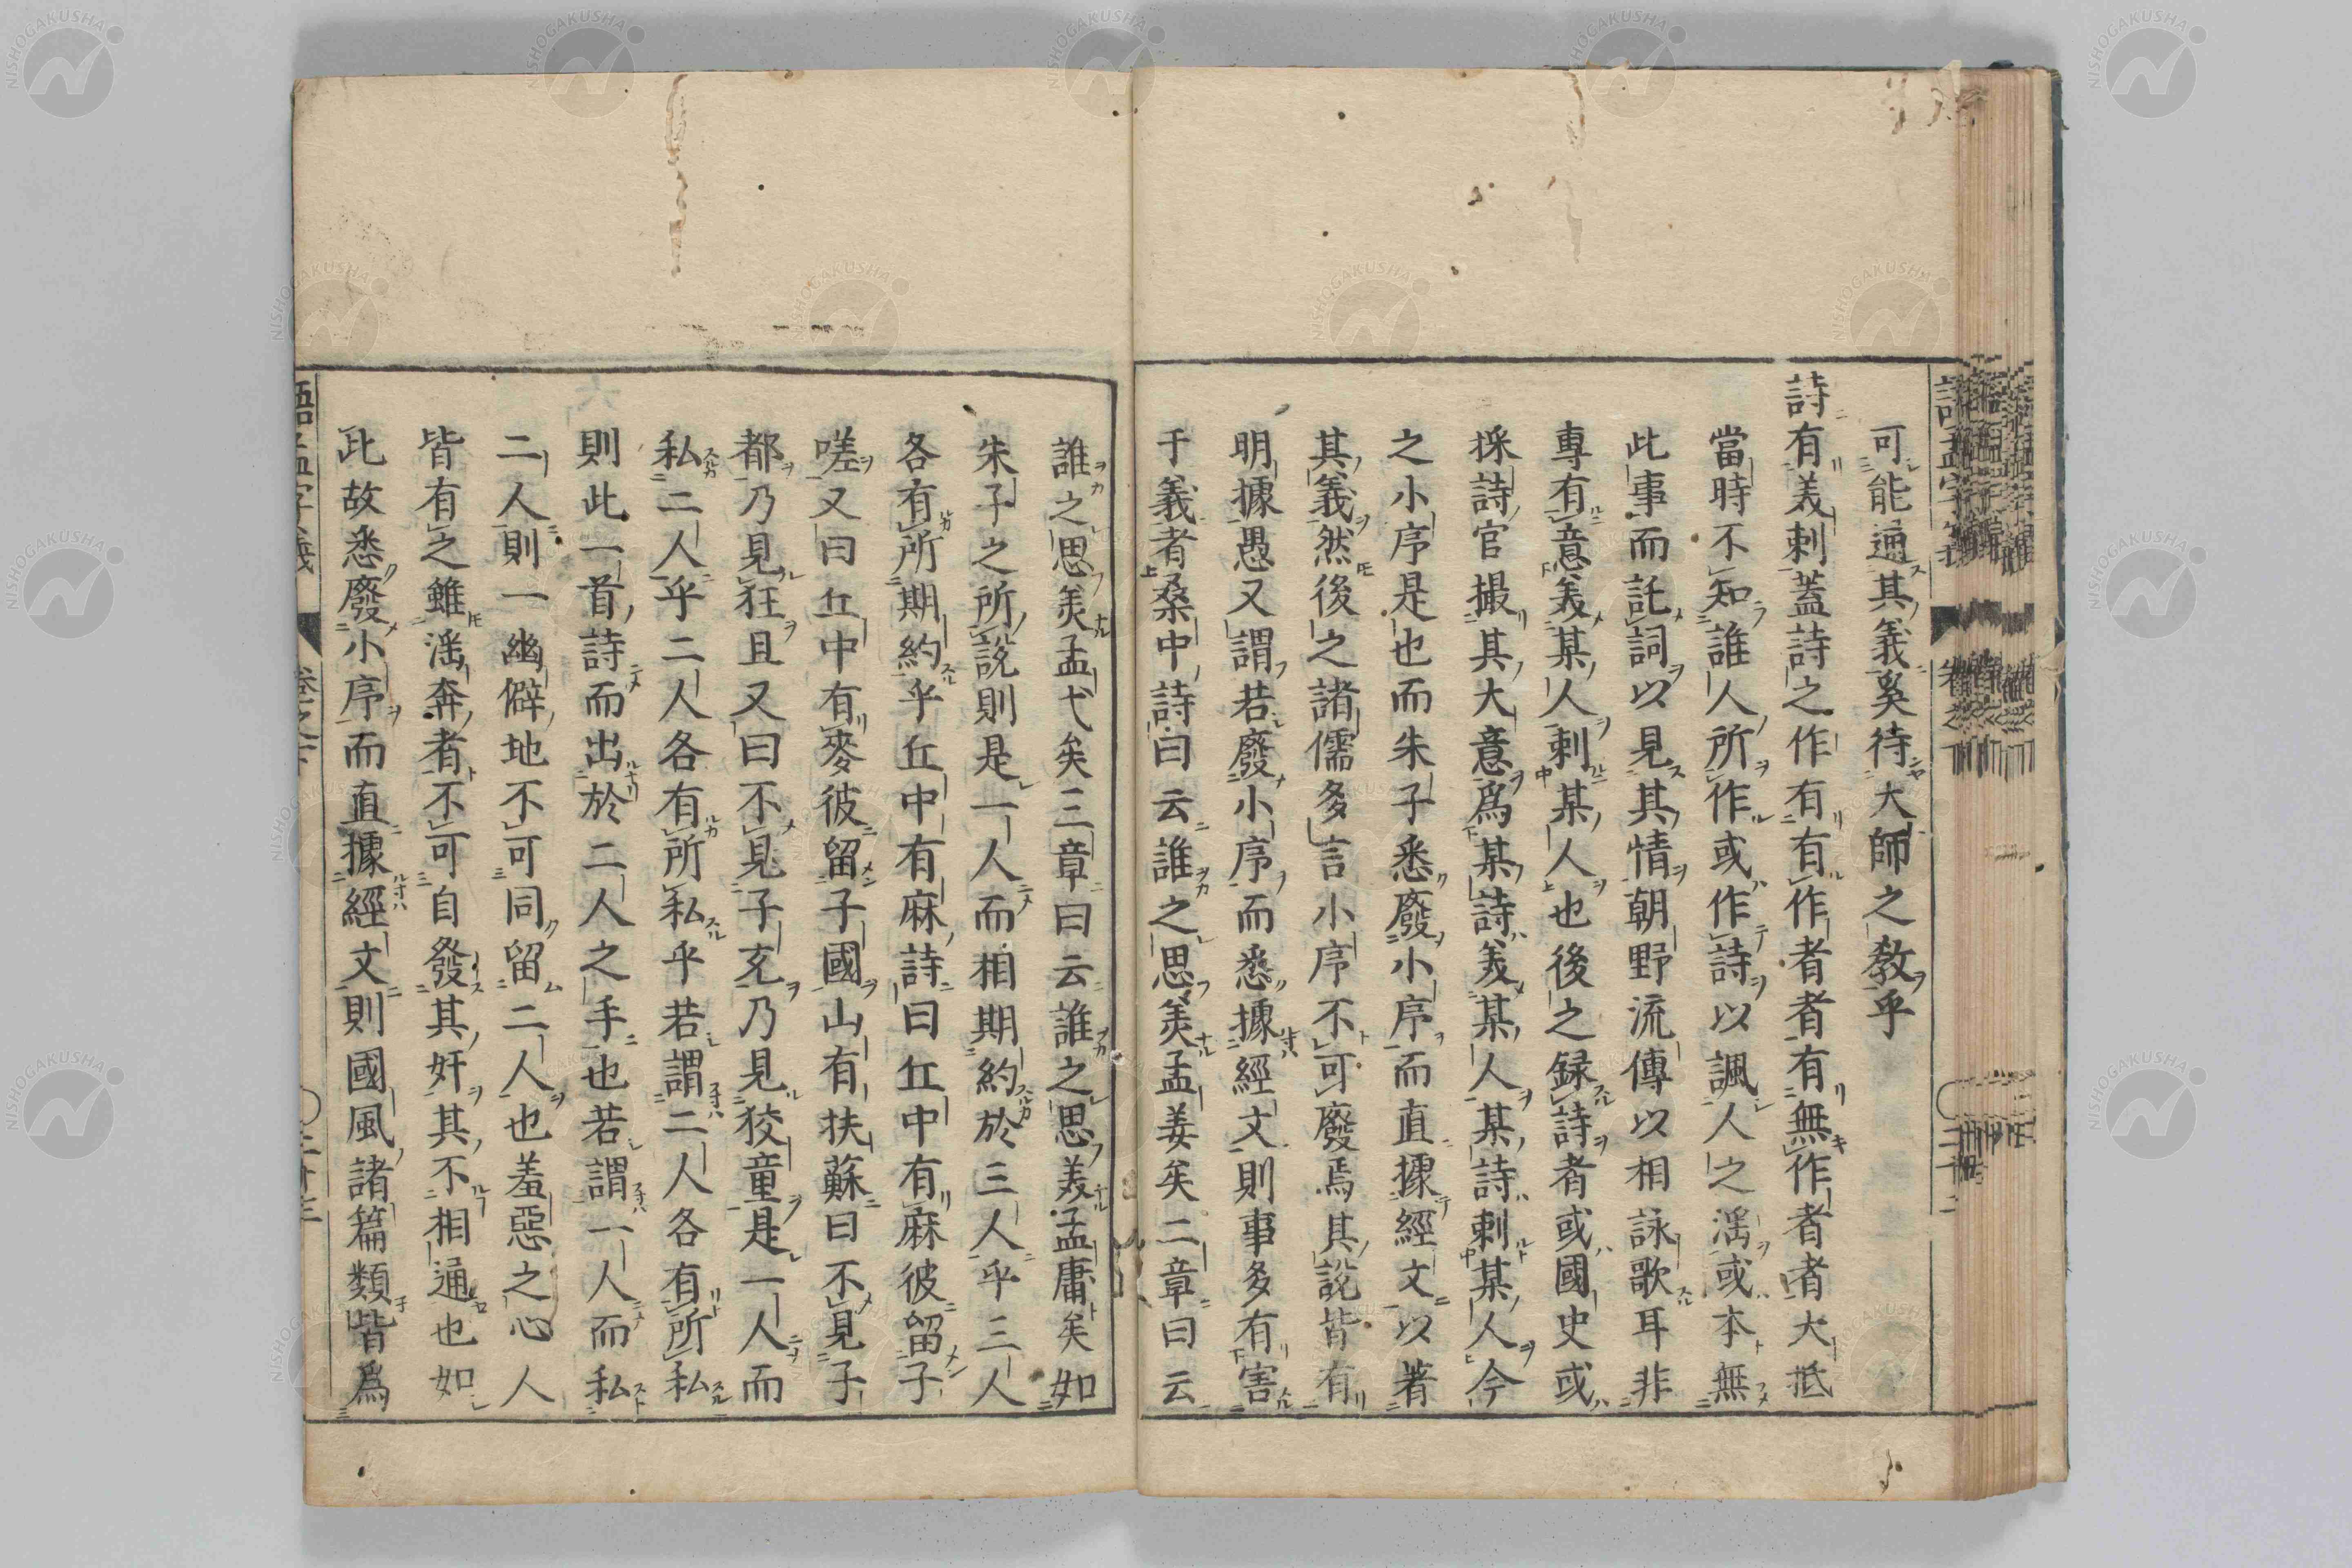 可能通其義奚待大師之教乎
詩有美刺蓋詩之作有有作者者有無作者者大抵
當時不知誰人所作或作詩以諷人之滛或本無
此事而託詞以見其情朝野流傳以相詠歌耳非
專有意美某人刺某人也後之録詩者或國史或
採詩官撮其大意爲某詩美某人某詩刺某人今
之小序是也而朱子悉廢小序而直據經文以著
其義然後之諸儒多言小序不可廢焉其說皆有
明據愚又謂若廢小序而悉據經文則事多有害
于義者桑中詩曰云誰之思美孟姜矣二章曰云
誰之思美孟弋矣三章曰云誰之思美孟庸矣如
朱子之所說則是一人而相期約於三人乎三人
各有所期約乎丘中有麻詩曰丘中有麻彼留子
嗟又曰丘中有麥彼留子國山有扶蘇曰不見子
都乃見狂且又曰不見子充乃見狡童是一人而
私二人乎二人各有所私乎若謂二人各有所私
則此一首詩而出於二人之手也若謂一人而私
二人則一幽僻地不可同留二人也羞惡之心人
皆有之雖滛奔者不可自發其奸其不相通也如
此故悉廢小序而直據經文則國風諸篇類皆爲
語孟字義 卷之下 〇二十三
NISHOGAKUSHA